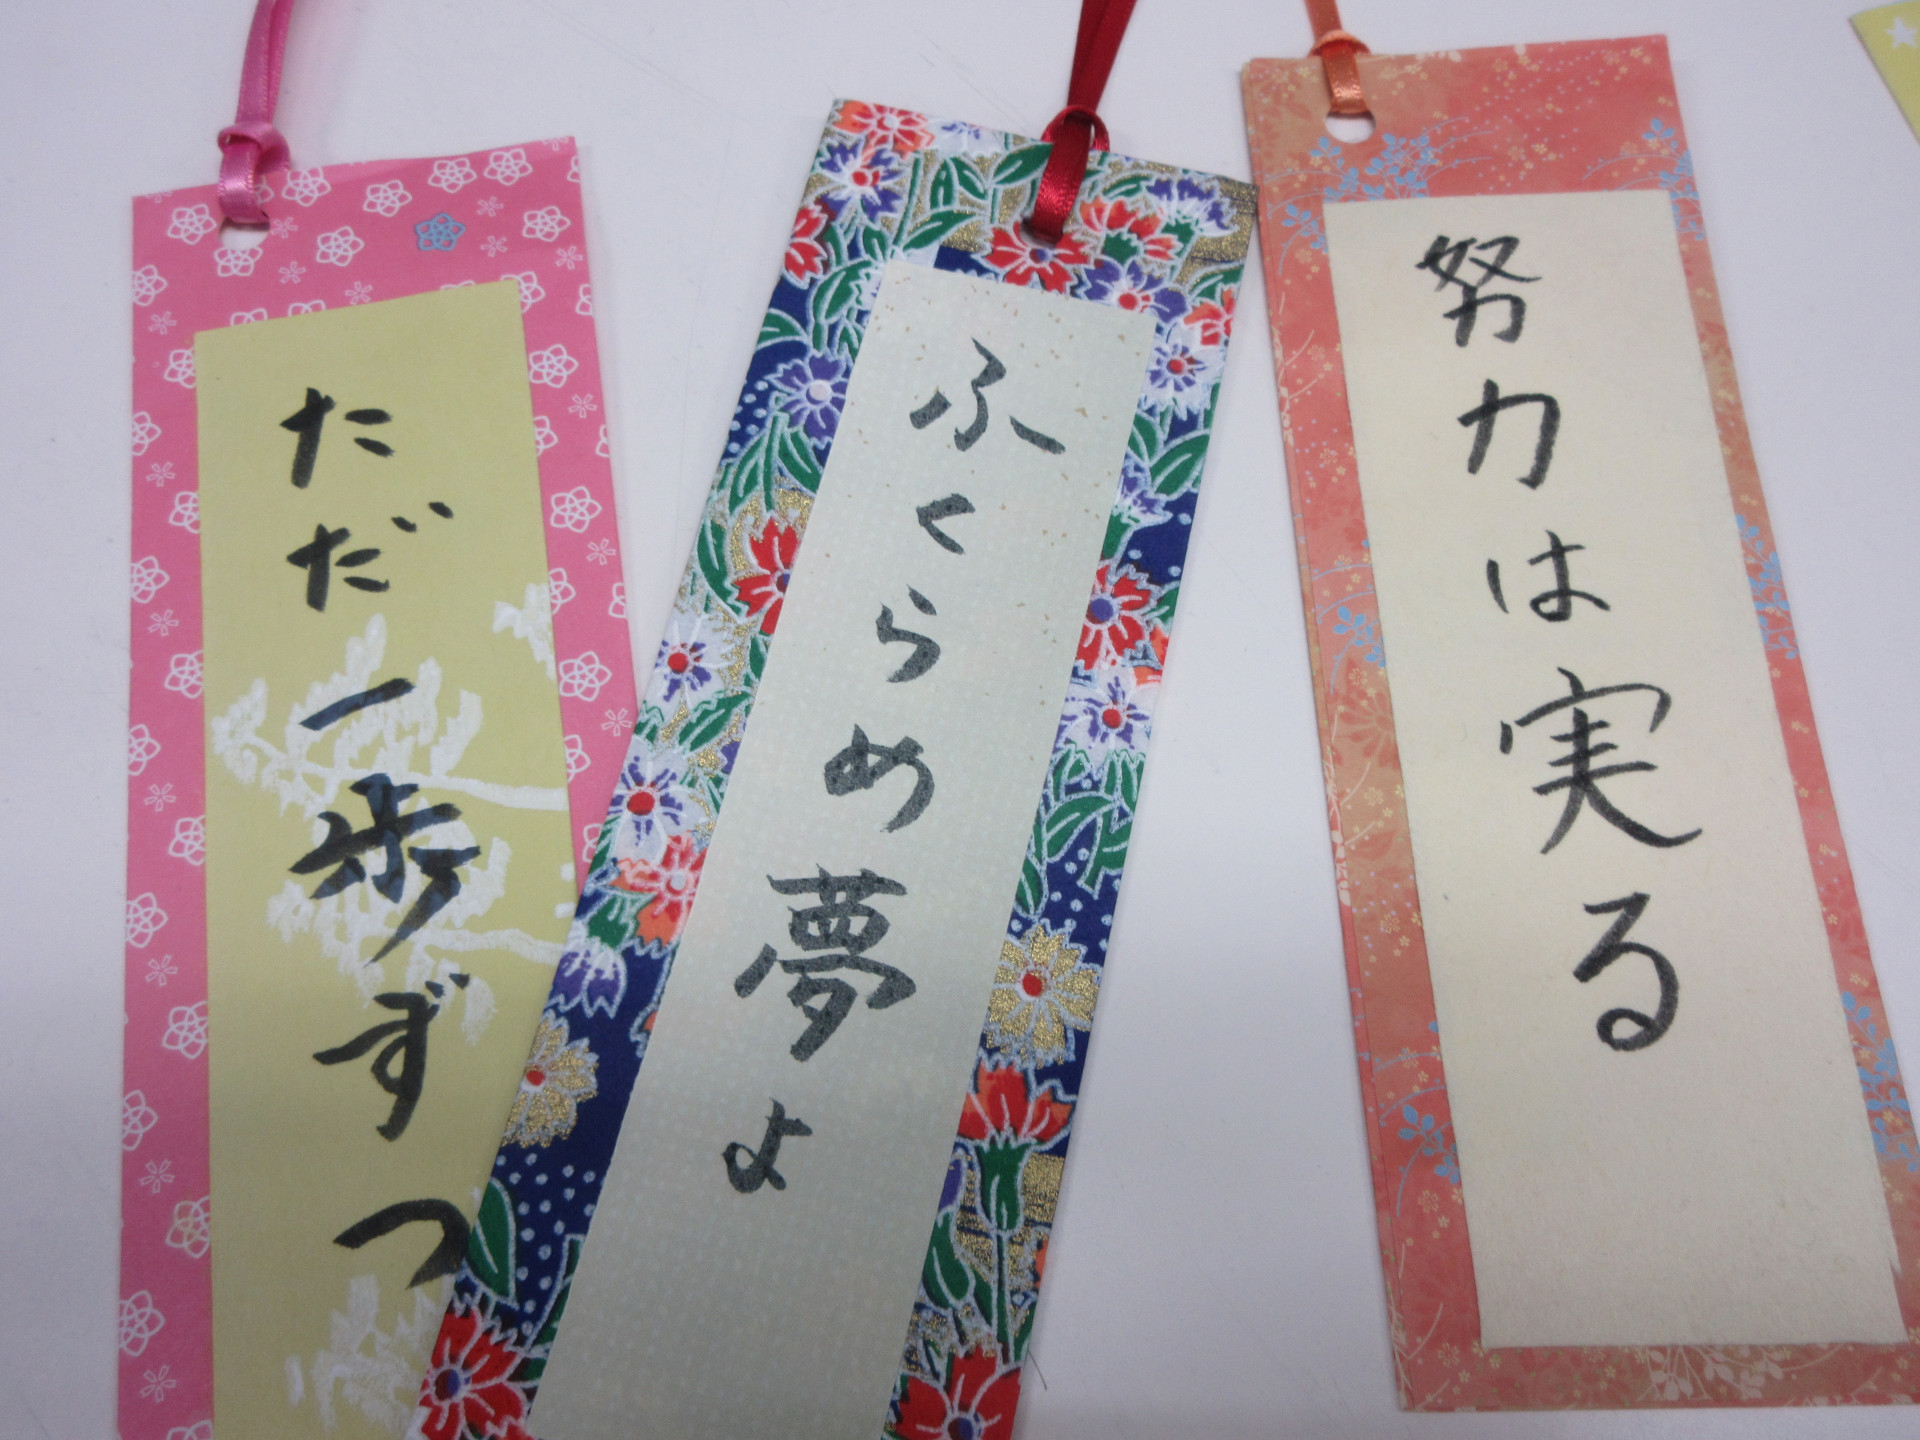 ただ一歩ずつ
ふくらめ夢よ
努力は実る